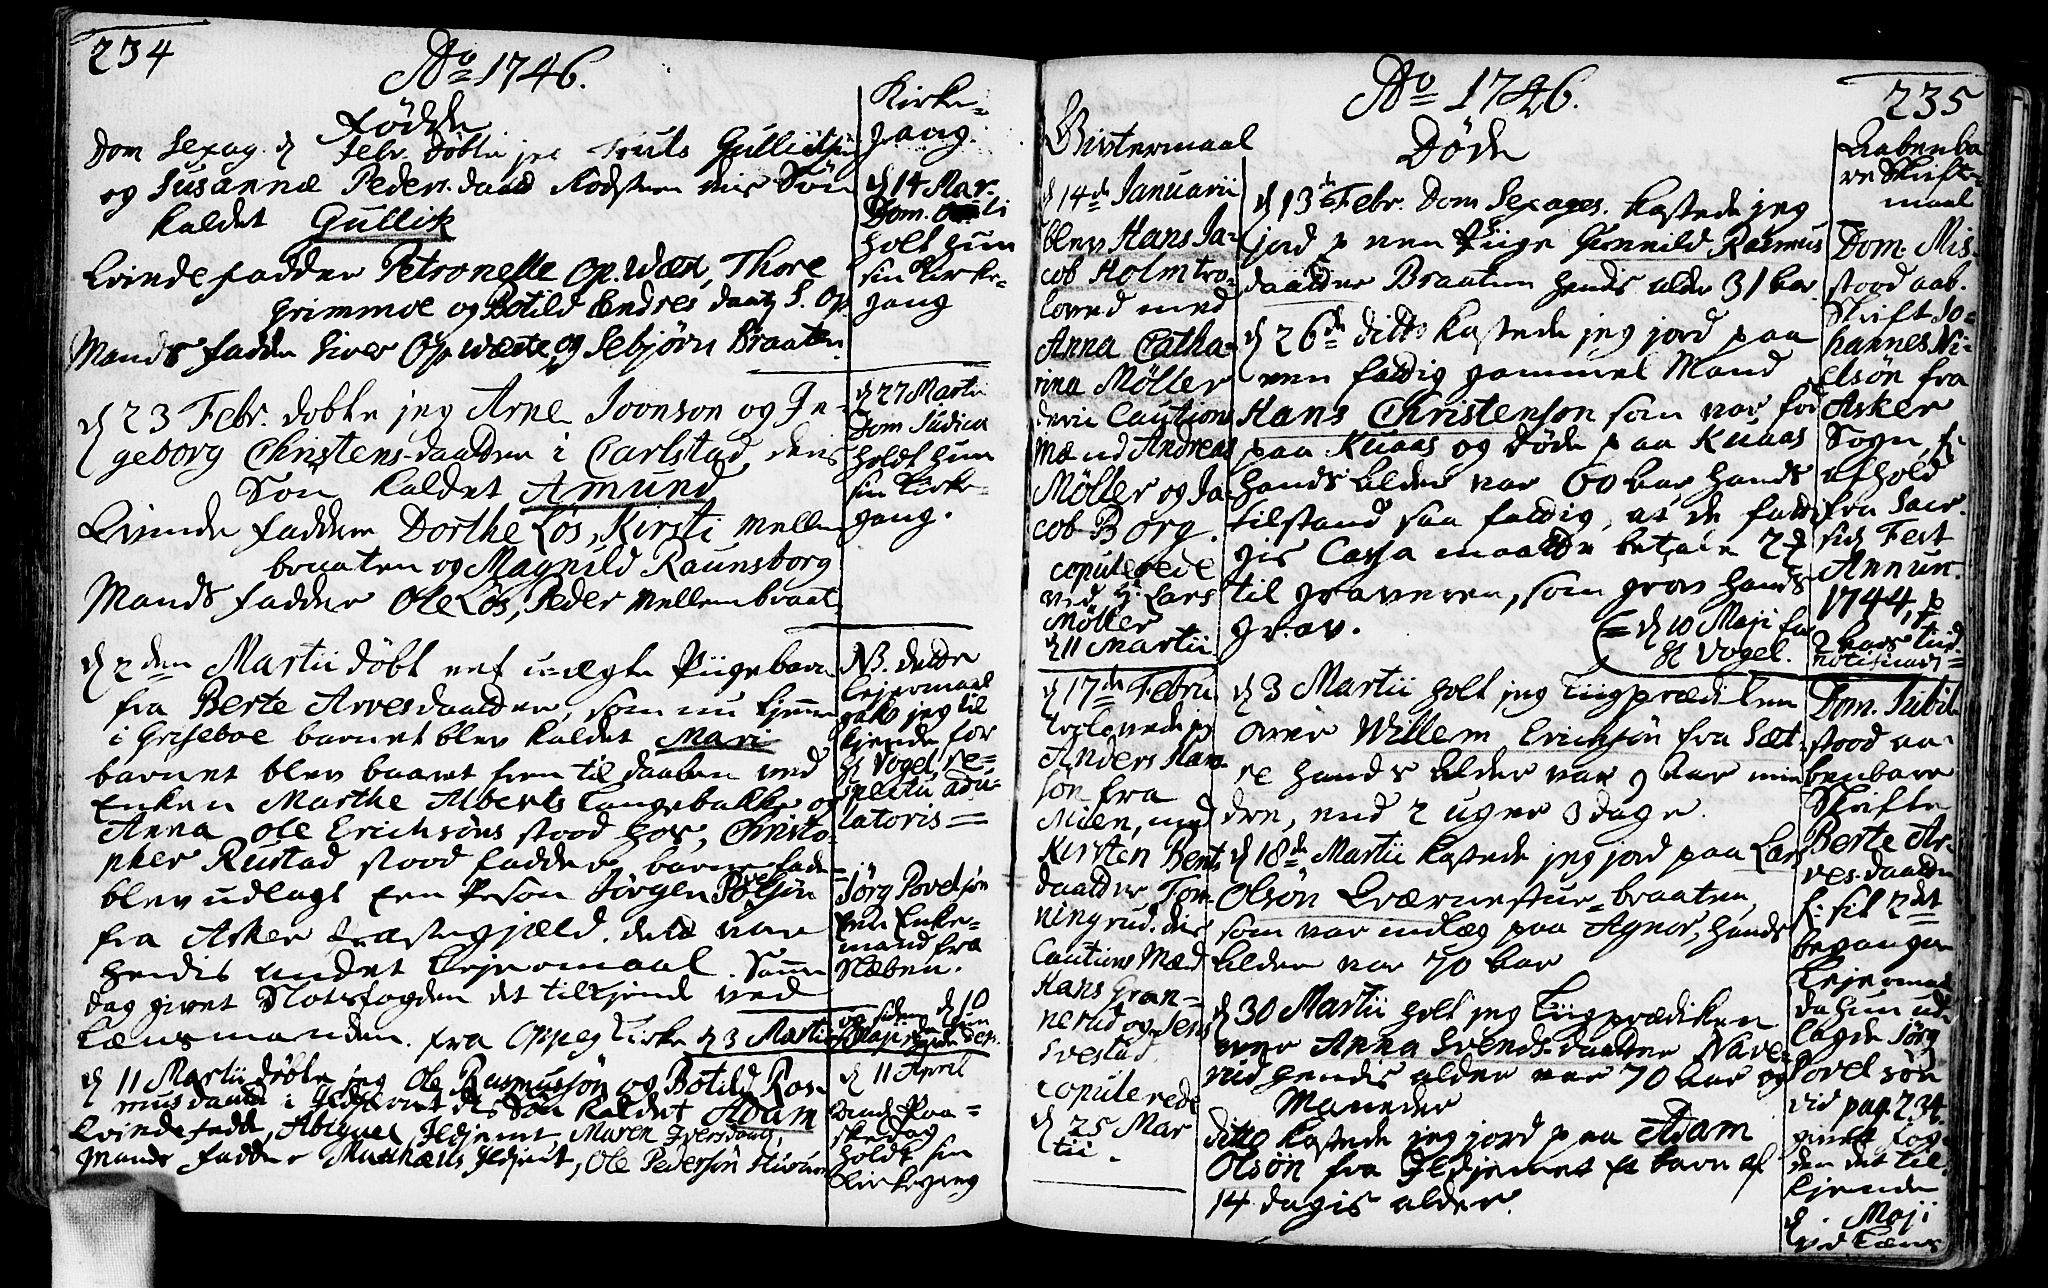 234
Ao 1746.
Fødde
Dom Sexag. d Febr. døbte jeg Truls Gullichsøn
og Susannæ Peders-daatt deris Søn
kaldet Gullik
Qvindefadder Petronelle Op. Wæst, Thore
Grimmoe og Botild Endres daatt S. Op.
Mands fadder Siver Op. Wæste og Sebjørn Braaten.
d 23 Febr. dobte jeg Arne Joonson og In-
geborg Christens-daatter i Carlstad, deris
Søn kaldet Amund
Qvinde fadder Dorthe Løs, Kirsti Mellem
braaten og Magnild Raunsborg
Mands fadder Ole Løs, Peder Mellembraat.
d 2den Martii døbt eet u-ægte Piigebarn
fra Berte Arvesdaatter, som nu tjener
i Griseboe barnet blev kaldet Mari
barnet blev baaret frem til daaben ved
Enken Marthe Alberts Langebakke og
Anna Ole Erichsøns stood hos, Christo-
pher Rustad stood fadder, barne fader
blev udlagt Een Person Jørgen Povelsøn
fra Asker Præstegjæld. dette var
hendis andet Lejermaal. Samme
dag givet Slotsfogden det tilkjende ved
Lænsmanden. fra Oppeg Kirke d 3 Martii
d 11 Martii døbte jeg Ole Rasmussøn og Botild Ras-
musdaatt i Ildjernet deris Søn kaldet Adam
Qvindefadd, Abiguel Ildjernt, Maren Iversdaat,
Mands fadder Matthæus Ildjernt, Ole Pedersøn
Kirke-
gang.
d 14 Mar.
Dom. Oculi
holt hun
sin Kirke-
gang
d 27 Martii
Dom Judica
holdt hun
sin Kirke-
gang.
NB. dette
Lejermaal
gav jeg til
kjende for
Hr Vogel re-
spectu adu-
latoris
Jørg Povelsøn
Een Enke-
mand fra
Næben.
og siden d 10
Maji
d 11 April
anden Paa-
skedag
holdt sin
Kirkegang
Ao 1746.
235
Givtermaal
d 14de Januarii
blev Hans Ja-
cob Holm tro-
loved med
Anna Catha-
rina Møller
deris Cautions
Mænd Andreas
Møller og Ja-
cob Borg.
copulerede
ved Hr Lars
Møller
d 11 Martii.
d 17de Febru
trolovede jeg
Anders Han-
søn fra
Nien, med
Kirsten Bent-
daatter Ton-
ningrud. deris
Cautions Mænd
Hans Gran-
nerud og Jens
Svestad.
copulerede
d 25 Mar
tii.
Døde
d 13de Febr. Dom Sexages. kastede jeg
jord p een Piige Gunnild Rasmus
daatter Braaten hends alder 31 aar.
d 26de ditto kastede jeg jord paa
een fattig gammel Mand
Hans Christenson som var fød
paa Kuaas og døde paa Kuaas
hands Alder var 60 aar hands
tilstand saa fattig, at de fatti
gis Cassa maatte betale
til graveren, som grov hands
grav.
d 10 Maji
Hr Vogel.
d 3 Martii holt jeg Liigprædiken
over Willem Erichsøn fra Sæt-
re hands alder var 9 aar min
dre, end 2 uger 3 dage.
d 18de Martii kastede jeg jord paa Lars
Olsøn Qværnestue-braaten,
som var indlæg paa Agnor, hands
alder var 70 aar
d 30 Martii holt jeg Liigprædiken
over Anna Svends-daatter Nave-
rud hendis alder var 70 aar og
Maaneder
ditto kastede jeg jord paa Adam
Olsøn fra Ildjernet et barn af
14 dagis alder.
Aabenba
re Skrifte-
maal
Dom. Mis.
stood aab.
Skrift Jo-
hannes Ni-
elsøn fra
Asker
Sogn, f.
afhold
fra Sacr.
sid Fest
Annun.
1744, p
2 aars tid
Dom. Jubil.
stood aa-
benbare
Skrifte
Berte Ar-
ves-daatter
f. sit 2det
begangen
Lejermaal
da hun ud-
lagde Jørg
Povelsøn
vid pag. 234.
givet Fog-
den det til-
kjende
d. Maji
ved Læns